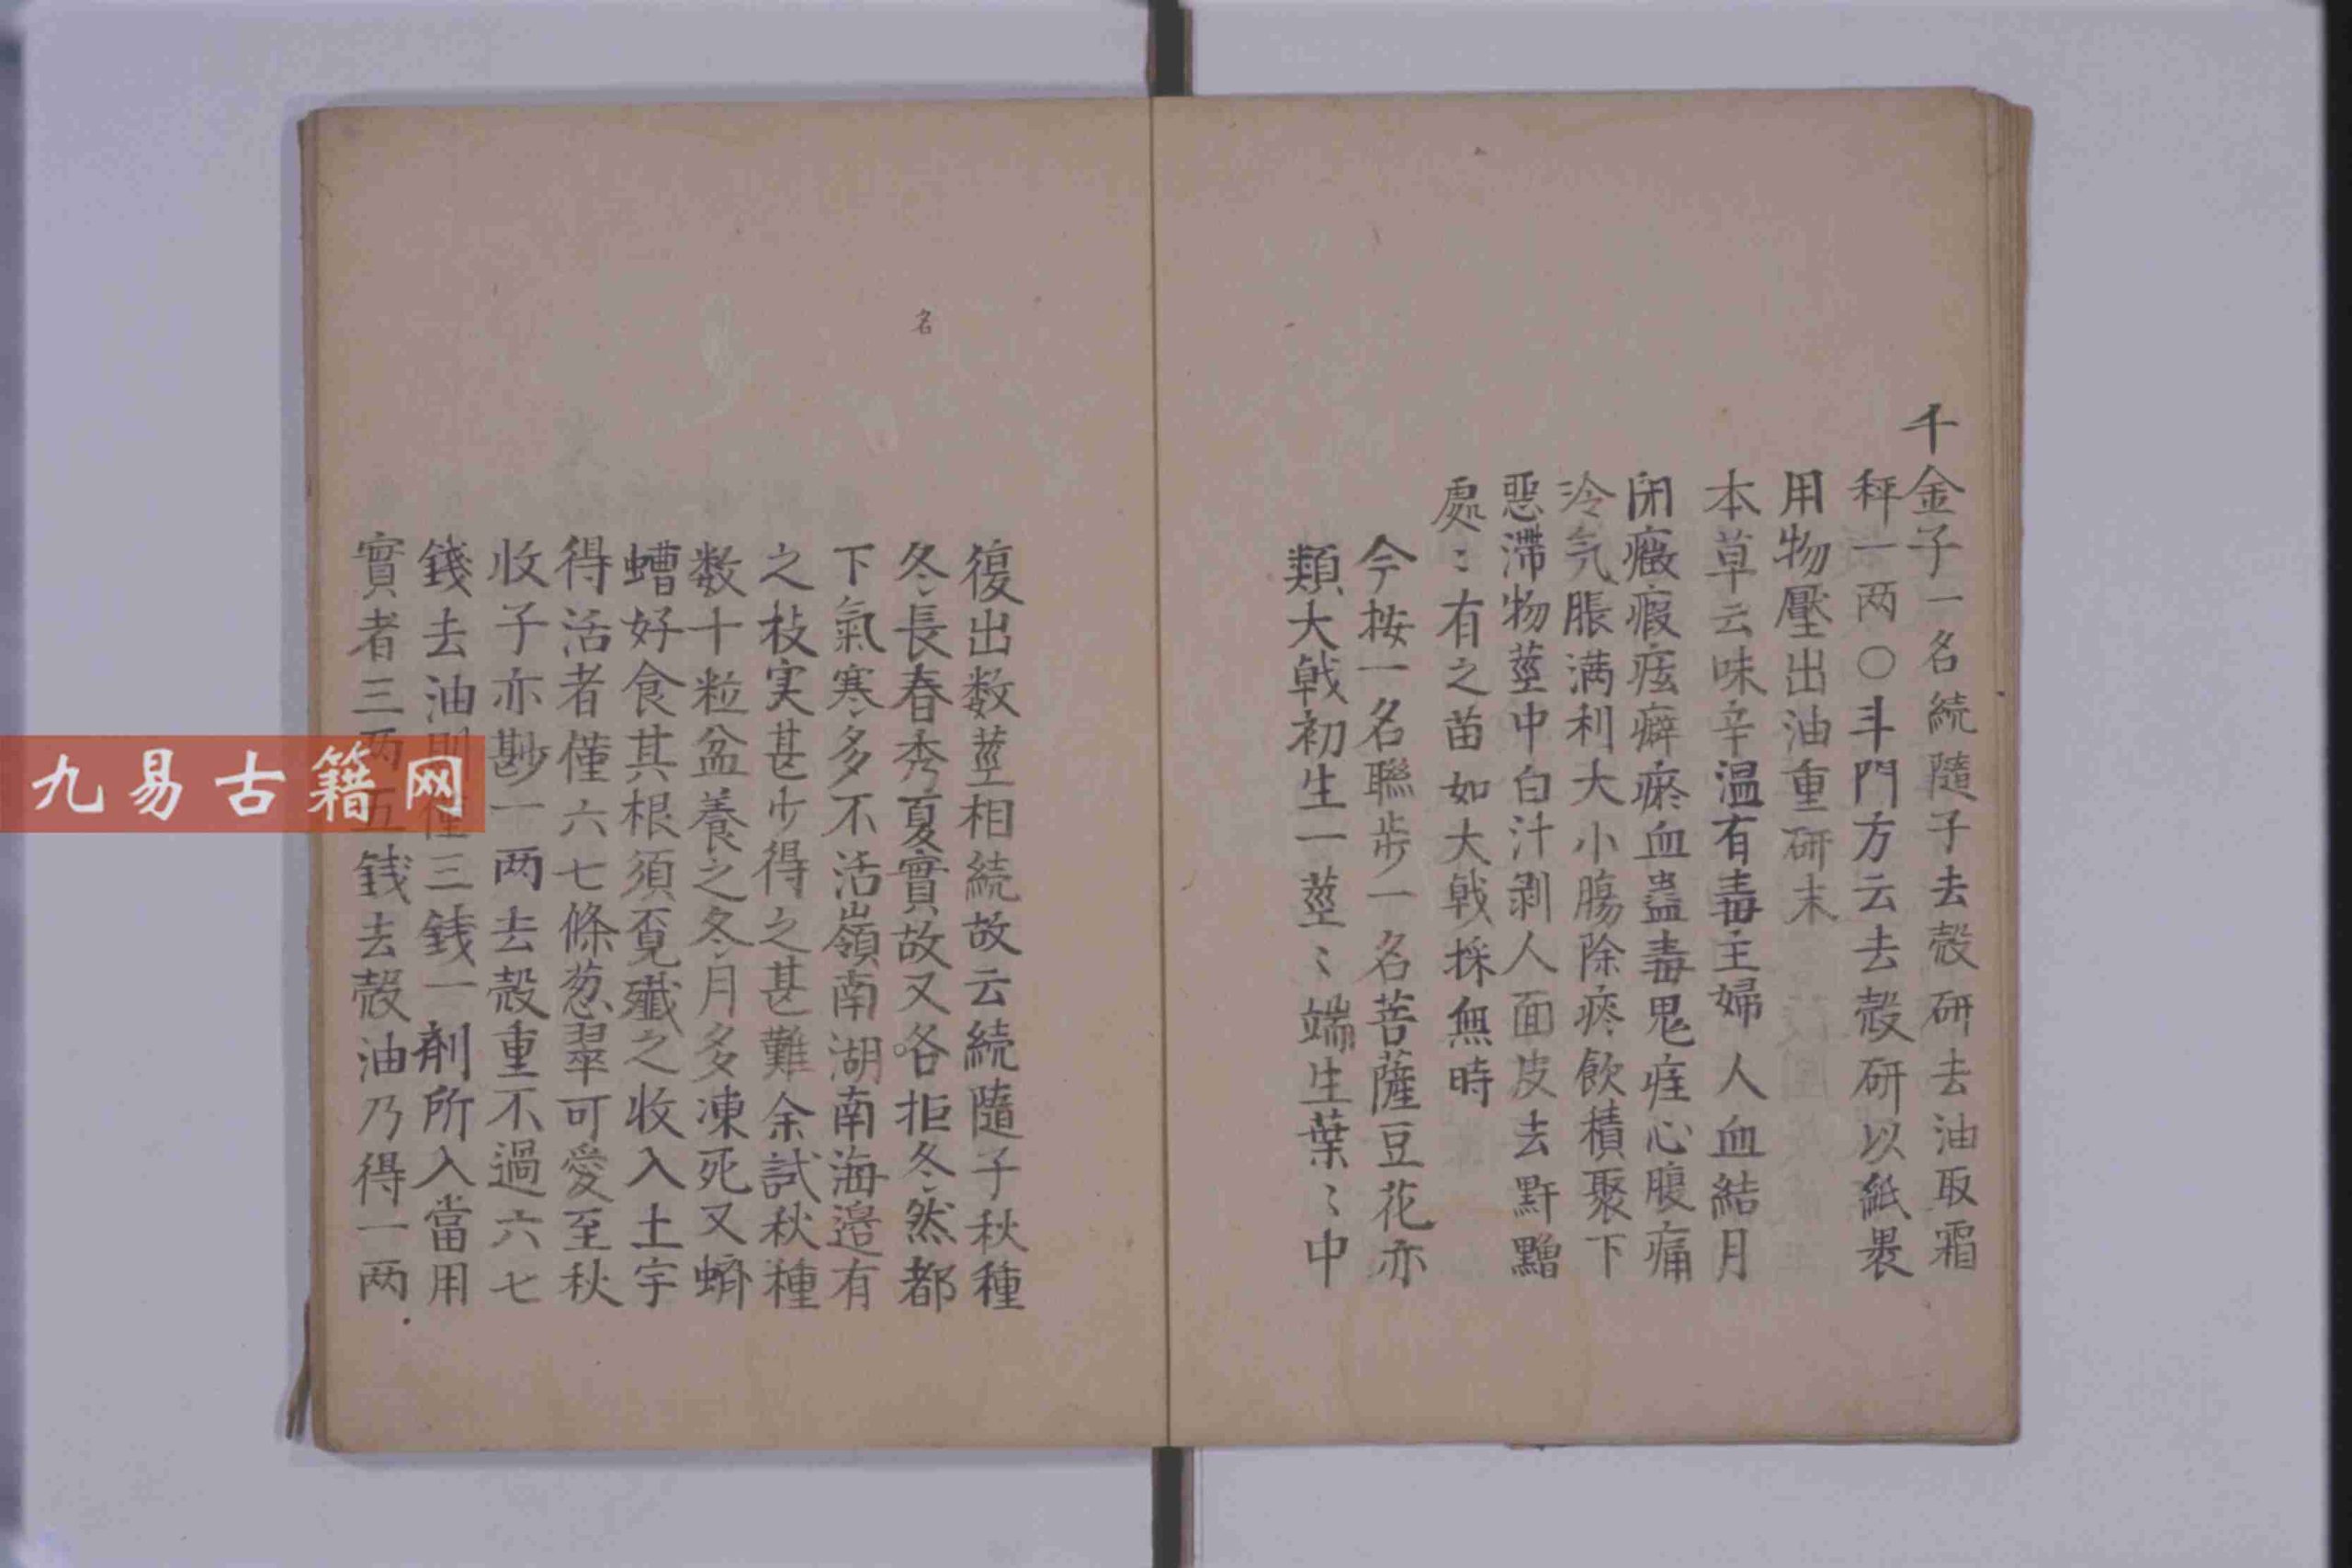 千金子一名続隨子去殼研去油取霜
秤一两〇斗門方云去殼研以紙褁
用物壓出油重研末
本草云味辛温有毒主婦人血結月
閉癥瘕痃癖瘀血蠱毒鬼疰心腹痛
冷气脹满利大小腸除痰飲積聚下
惡滯物莖中白汁剥人面皮去䵟黵
處〻有之苗如大戟採無時
今按一名聯步一名菩薩豆花亦
類大戟初生一莖〻端生葉〻中
復出数莖相続故云続隨子秋種
冬長春秀夏實故又各拒冬然都
名
下氣寒多不活嶺南湖南海邉有
之枝実甚少得之甚難余試秋種
数十粒盆養之冬月多凍死又蠐
螬好食其根須覔殱之收入土宇
得活者僅六七條葱翠可愛至秋
收子亦尠一两去殼重不過六七
錢去油則僅三錢一剤所入當用
實者三两五錢去殼油乃得一两
九易古籍网